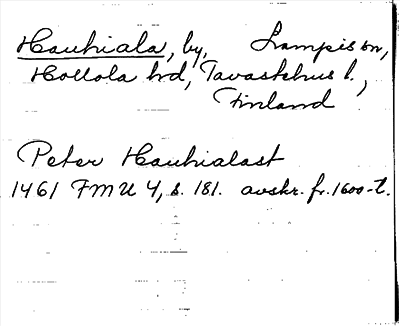 Hauhiala, by, Lampis sn,
Hollola hd, Tavastehus l.,
Finland
Peter Hauhialast
1461 FMU 4, s. 181. avskr. fr. 1600-t.